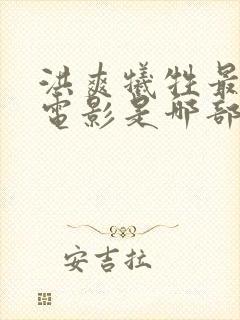 洪爽犠牲最
電影是哪部
安吉拉